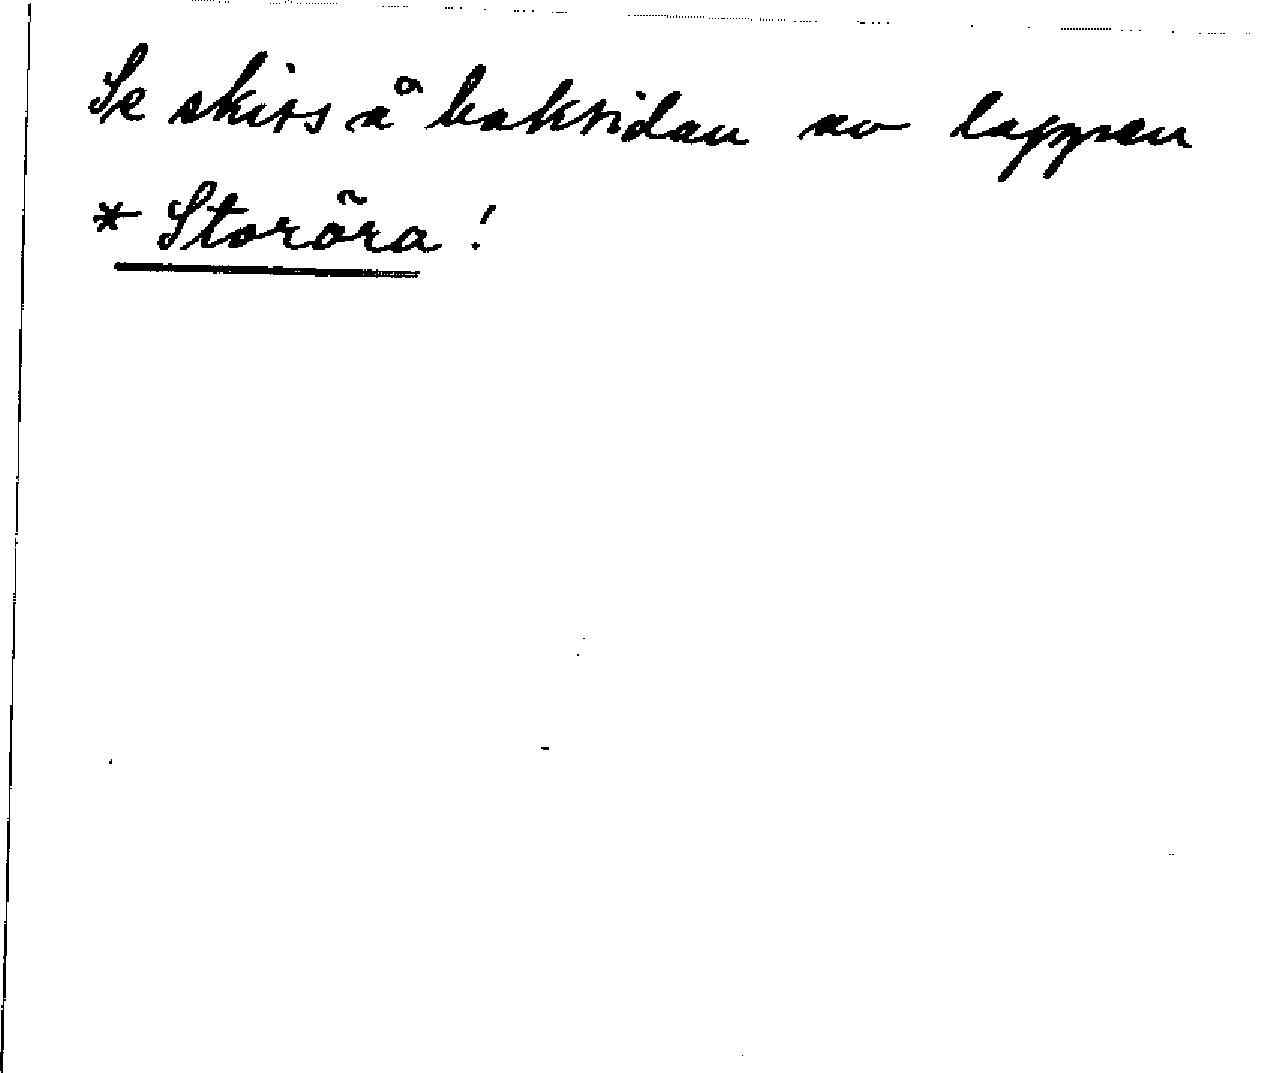 Se skiss å baksidan av lappen
* Storöra!